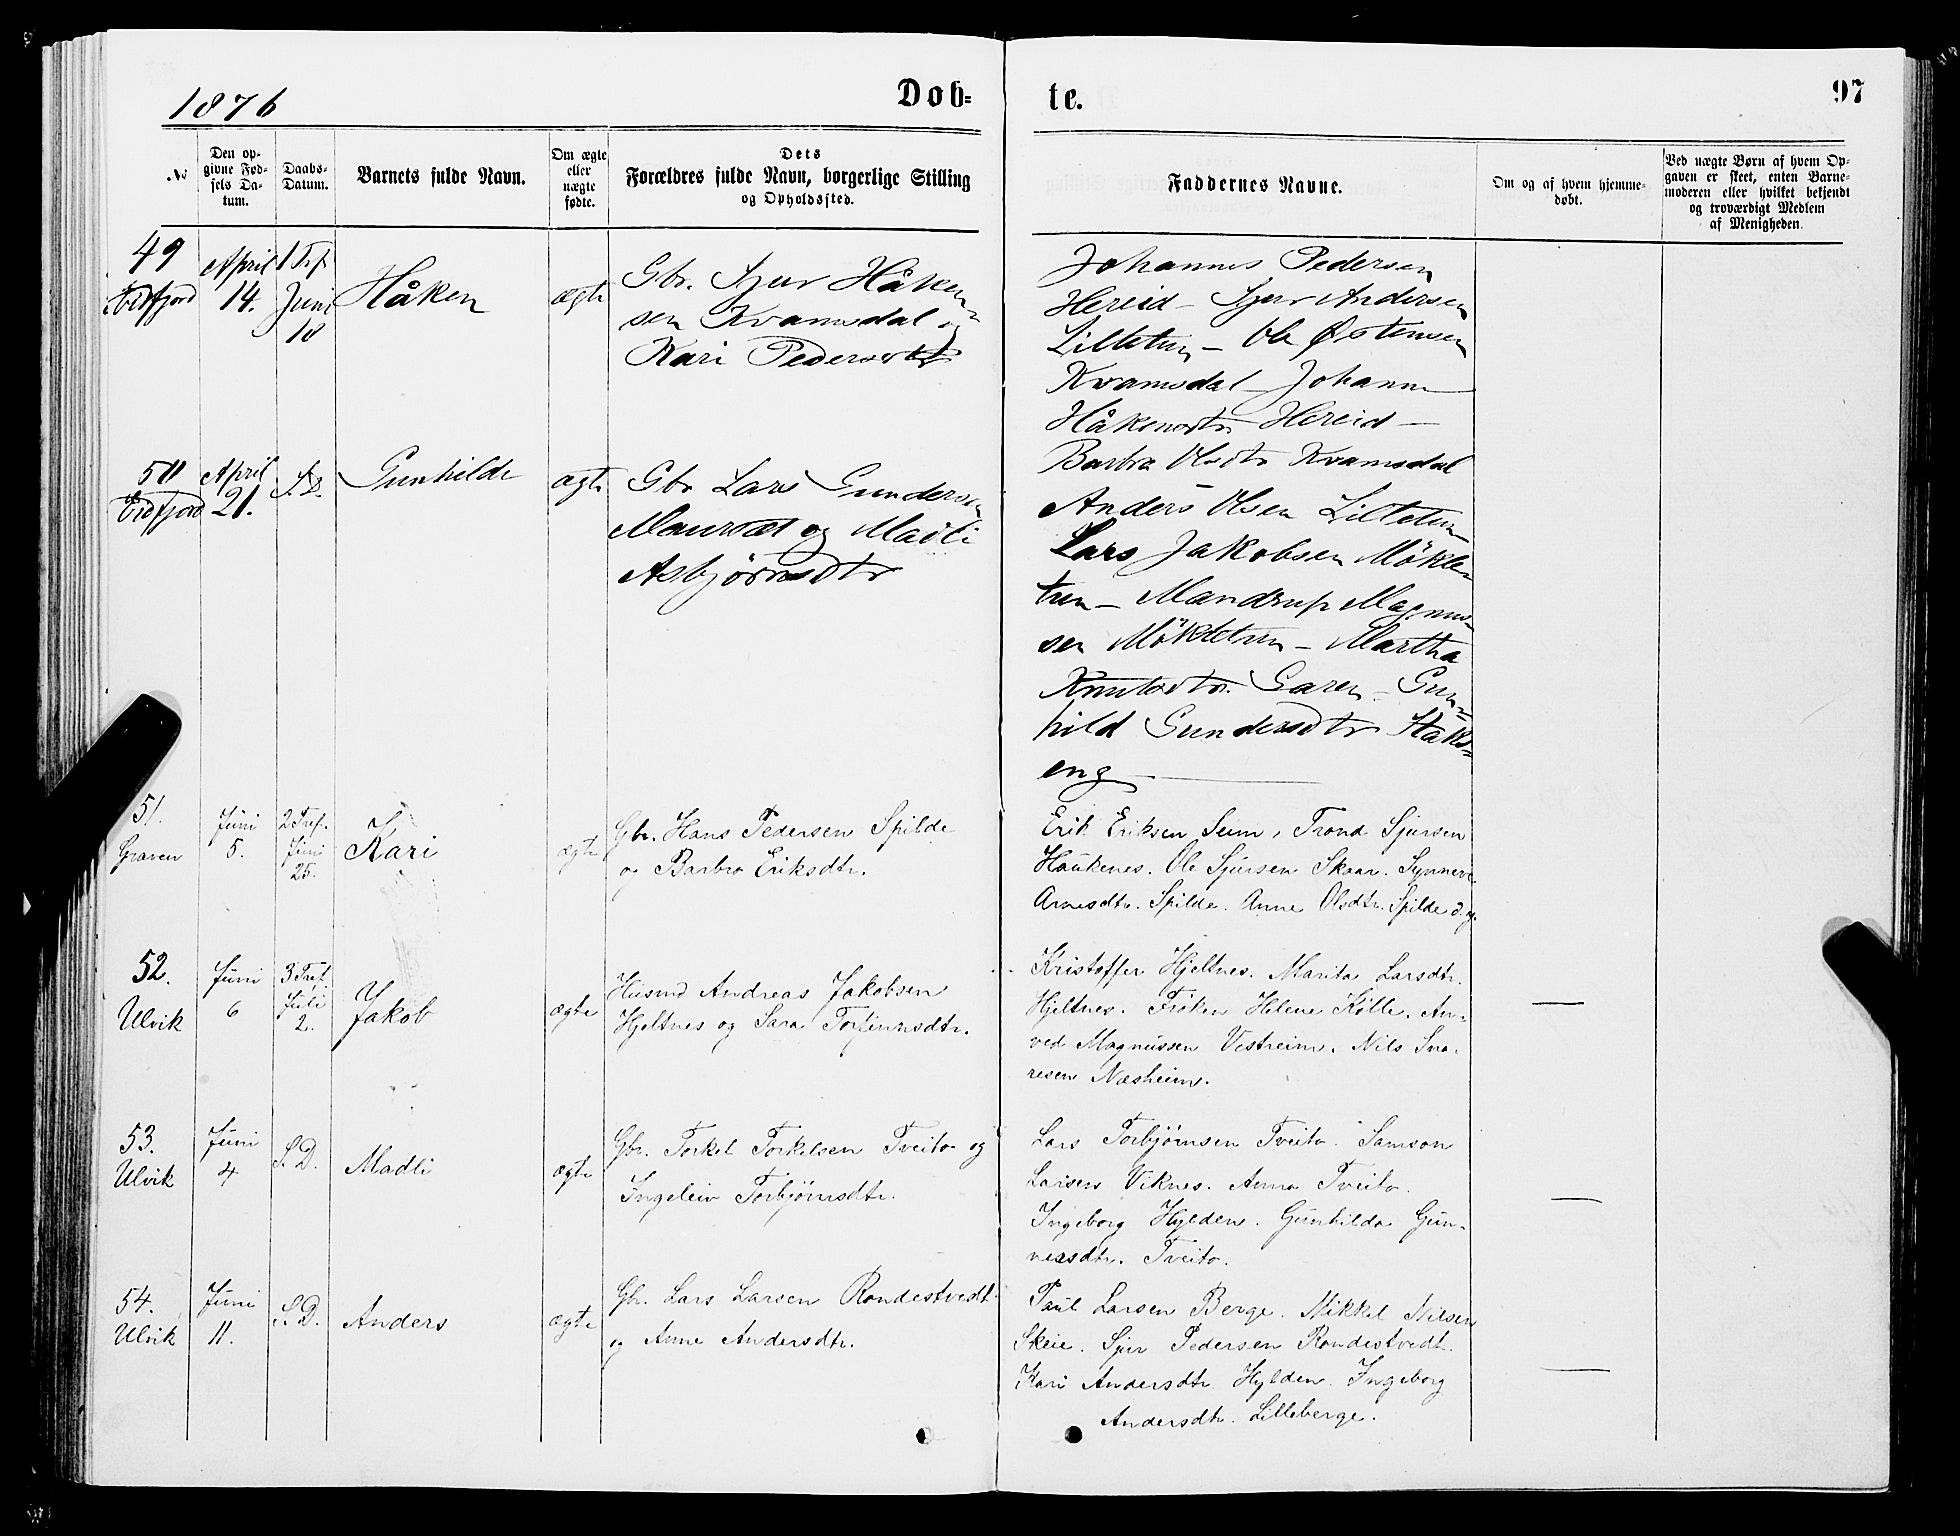 1876
Døb-
te.
97
No
Den op-
givne Fød-
sels Da-
tum.
Daabs-
Datum.
Barnets fulde Navn.
Om ægte
eller
uægte
fødte.
Dets
Forældres fulde Navn, borgerlige Stilling
og Opholdssted.
Faddernes Navne.
Om og af hvem hjemme-
døbt.
Ved uægte Børn af hvem Op-
gaven er skeet, enten Barne-
moderen eller hvilket bekjendt
og troværdigt Medlem
af Menigheden.
49
Eidfjord
April
14.
1 Trf
Juni
18
Håken
ægte
Gbr. Sjur Håken-
sen Kvamsdal og
Kari Pedersdtr
Johannes Pedersen
Hereid - Sjur Andersen
Lilletun - Ole Østensen
Kvamsdal - Johanna
Håkensdtr Hereid -
Barbra Olsdtr Kvamsdal
50
Eidfjord
April
21.
S. D.
Gunhilde
ægte
Gbr Lars Gundersen
Maursæt og Madli
Asbjørnsdtr
Anders Olsen Lilletun
Lars Jakobsen Mökle-
tun - Mandrup Magnus-
sen Mökletun - Martha
Knutsdtr. Garen - Gun-
hild Gundersdtr Håks-
eng
51.
Graven
Juni
5.
2 Tref.
Juni
25.
Kari
ægte
Gbr. Hans Pedersen Spilde
og Barbro Eriksdtr.
Erik Eriksen Seim, Trond Sjursen
Haukenes. Ole Sjursen Skaar. Synneve
Arnesdtr. Spilde. Anne Olsdtr. Spilde d. y.
52.
Ulvik
Juni
6
3 Tref.
Juli
2.
Jakob
ægte
Husmd Andreas Jakobsen
Hjeltnes og Sara Torfinnsdtr.
Kristoffer Hjeltnes. Marita Larsdtr.
Hjeltnes. Frøken Helene Kolle. An-
ved Magnussen Vestreim. Nils Sna-
resen Næsheim.
53.
Ulvik
Juni
4
S. D.
Madli
ægte
Gbr. Torkel Torkelsen Tveito og
Ingeleiv Torbjørnsdtr.
Lars Torbjørnsen Tveito. Samson
Larsen Viknes. Anna Tveito.
Ingeborg Hylden. Gunhilda Gun-
nersdtr. Tveito.
54.
Ulvik
Juni
11.
S. D.
Anders
ægte
Gbr. Lars Larsen Rondestvedt
og Anne Andersdtr.
Paul Larsen Berge. Mikkel Nilsen
Skeie. Sjur Pedersen Rondestvedt.
Kari Andersdtr Hylden. Ingeborg
Andersdtr. Lilleberge.